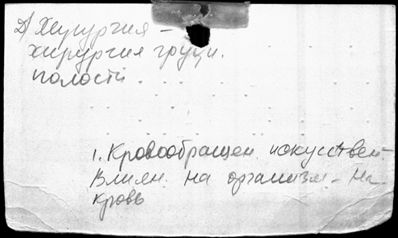 Д) Хирургия -
хирургия грудн.
полости.
1. Кровообращен. искусствен-
Влиян. на организм - на
кровь